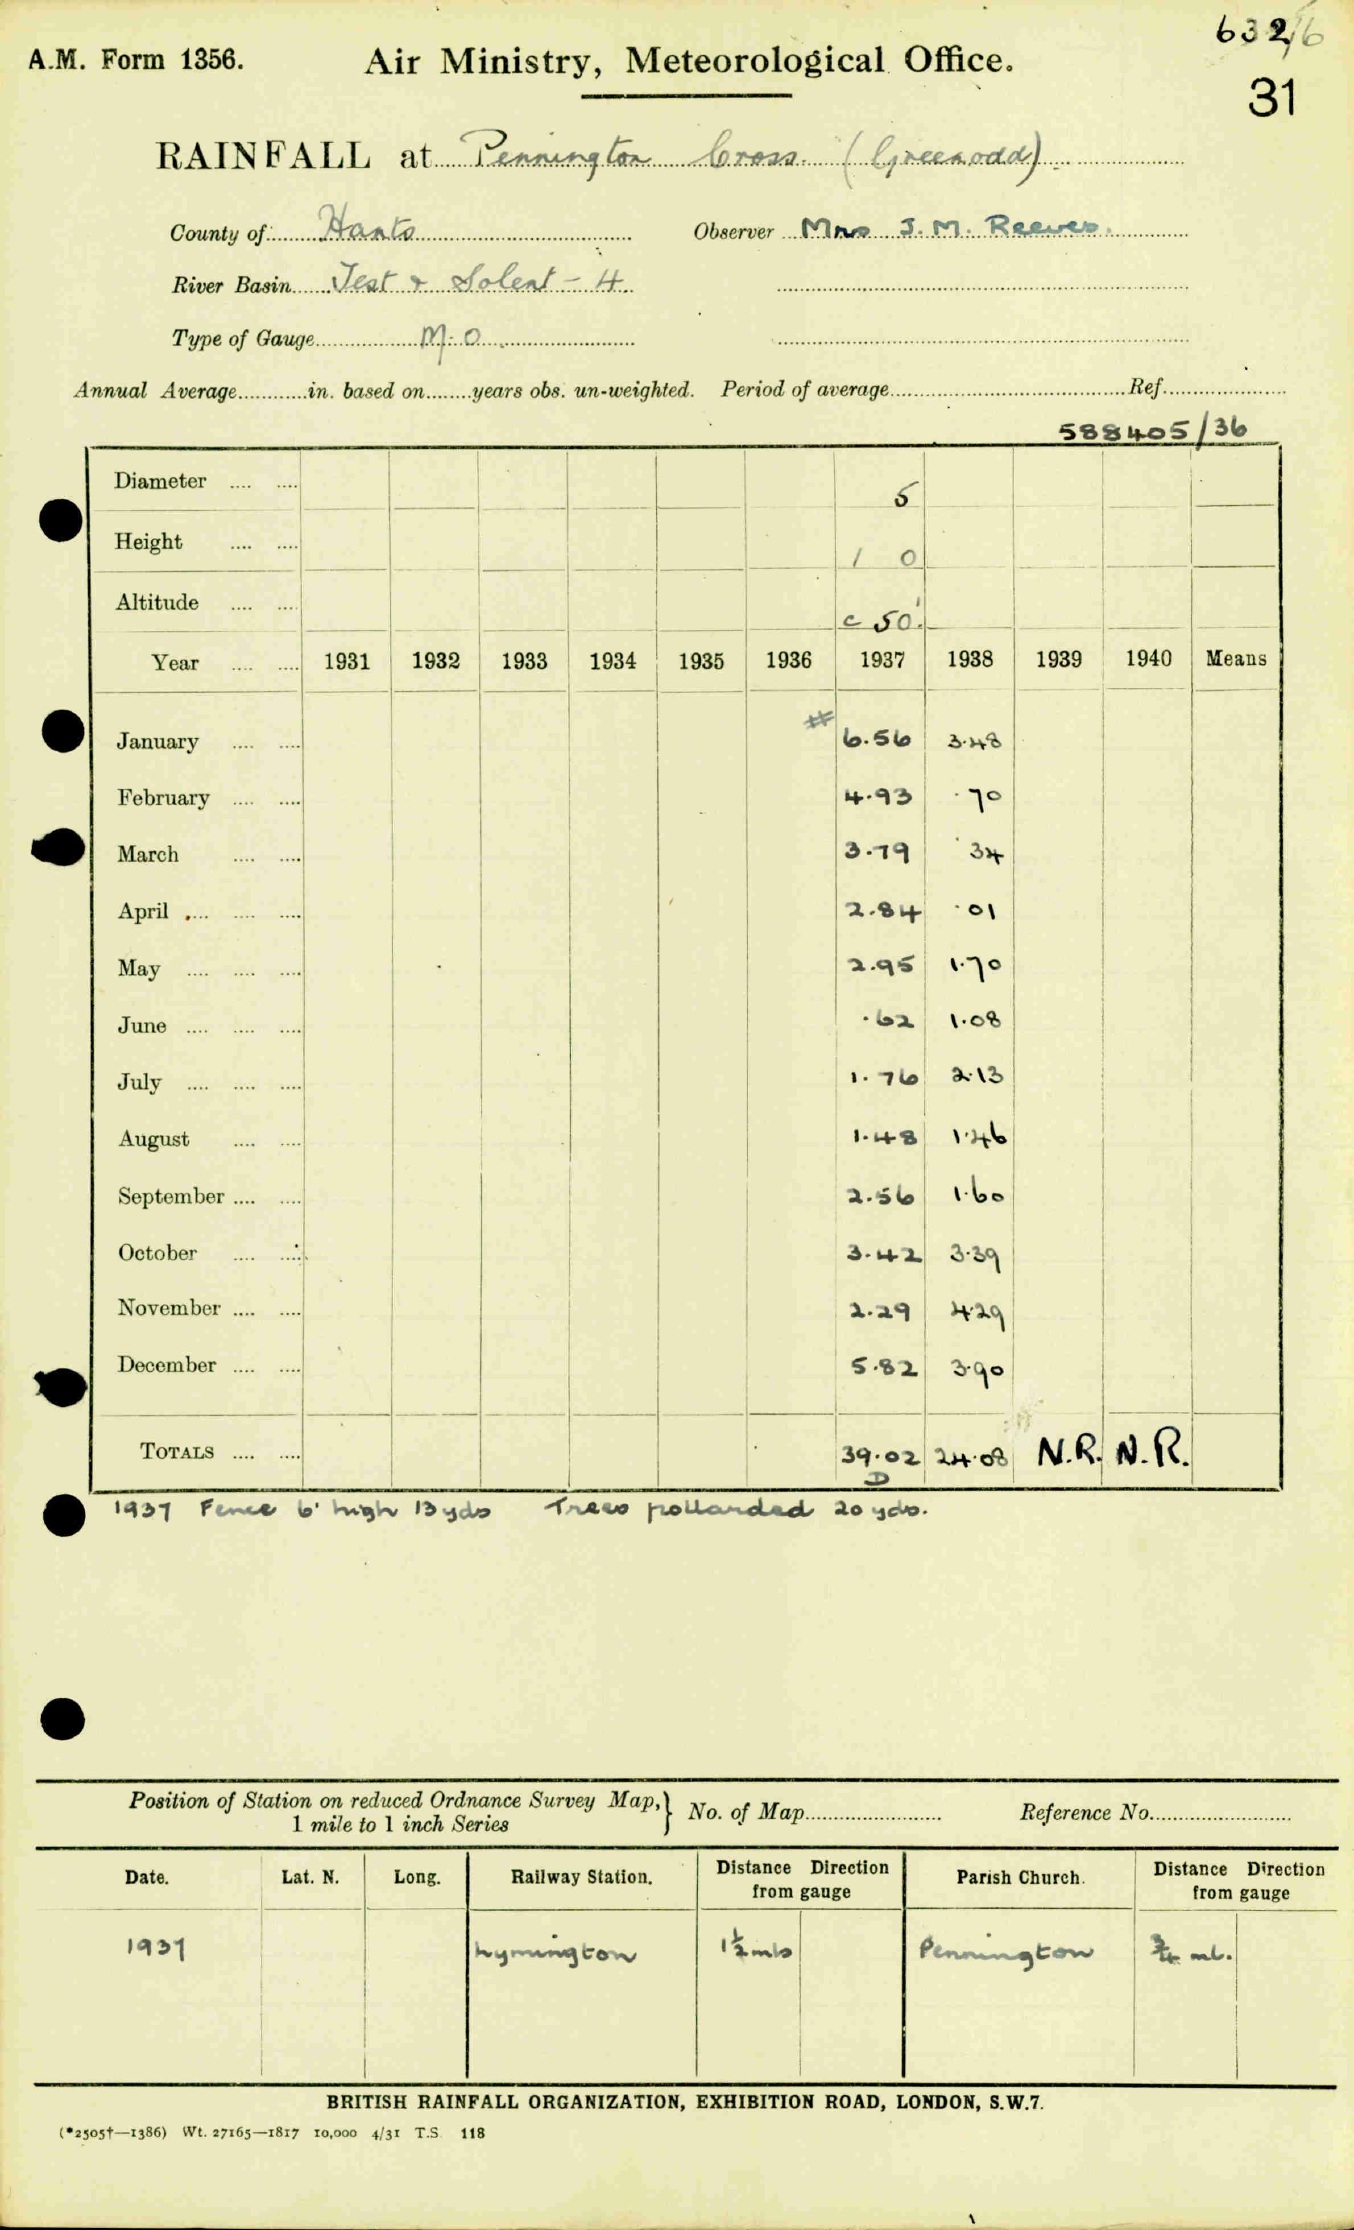 632/6
A.M. Form 1356. Air Ministry, Meteorological Office.
31
RAINFALL at Pennington Cross (Greenodd)
County of Hants Observer Mrs J. M. Reeves.
River Basin Test & Solent - 4
Type of Gauge M.O.
Annual Average in. based on years obs. un-weighted. Period of average Ref.
588405/36
Diameter 5
Height 1 0
Altitude c 50'
Year 1931 1932 1933 1934 1935 1936 1937 1938 1939 1940 Means
January # 6.56 3.48
February 4.93 .70
March 3.79 .34
April 2.84 .01
May 2.95 1.70
June .62 1.08
July 1.76 2.13
August 1.48 1.46
September 2.56 1.60
October 3.42 3.39
November 2.29 4.29
December 5.82 3.90
TOTALS 39.02 24.08 N.R. N.R.
D
1937 Fence 6' high 13 yds Trees pollarded 20 yds.
Position of Station on reduced Ordnance Survey Map, 1 mile to 1 inch Series } No. of Map Reference No.
Date. Lat. N. Long. Railway Station. Distance Direction from gauge Parish Church. Distance Direction from gauge
1937 Lymington 1½ mls Pennington ¾ ml.
BRITISH RAINFALL ORGANIZATION, EXHIBITION ROAD, LONDON, S.W.7.
(*2505†—1386) Wt. 27165—1817 10,000 4/31 T.S. 118